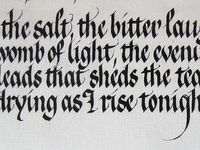 the salt, the bitter lau
womb of light, the even
leads that sheds the tea
drying as I rise tonigh